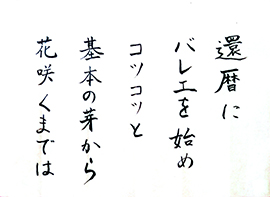 還暦に
バレエを始め
コツコツと
基本の芽から
花咲くまでは